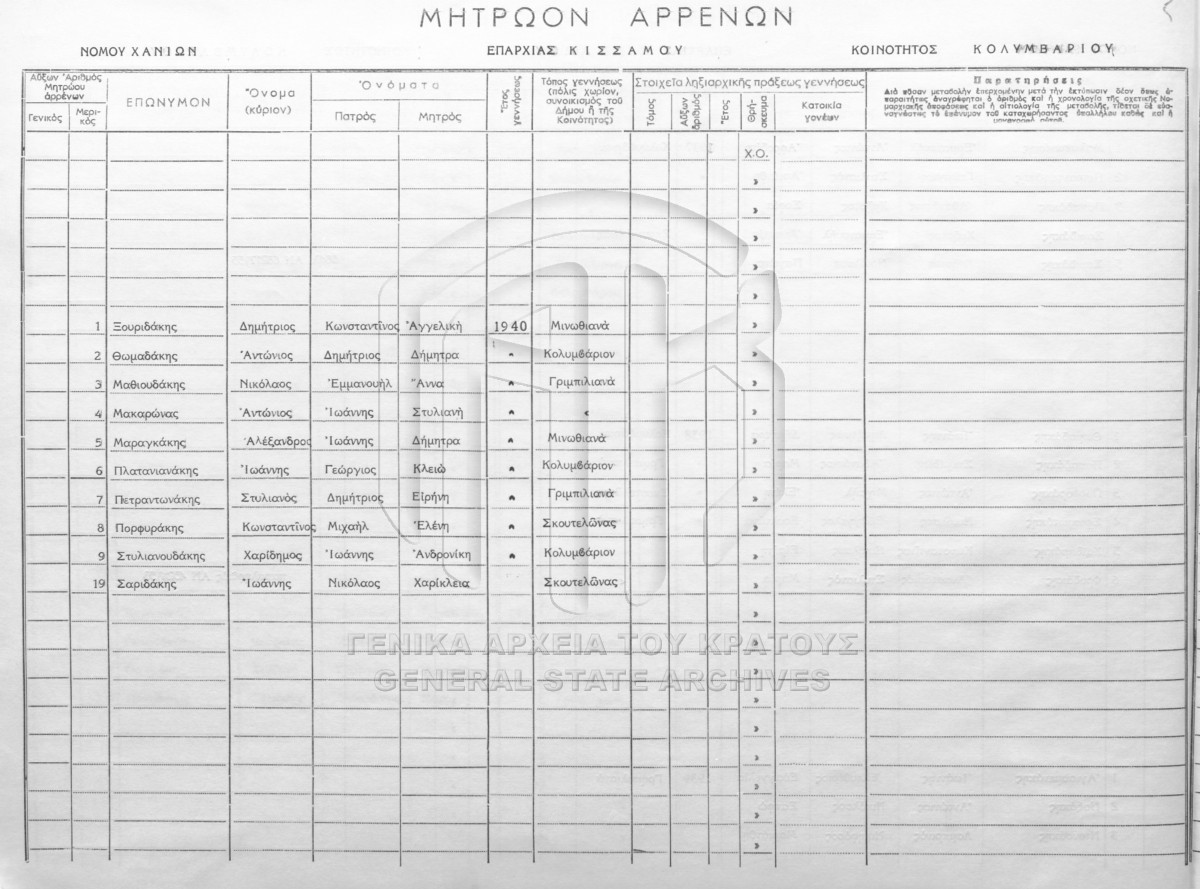 ΜΗΤΡΩΟΝ ΑΡΡΕΝΩΝ
ΝΟΜΟΥ ΧΑΝΙΩΝ ΕΠΑΡΧΙΑΣ ΚΙΣΣΑΜΟΥ ΚΟΙΝΟΤΗΤΟΣ ΚΟΛΥΜΒΑΡΙΟΥ
Αὔξων Ἀριθμὸς Μητρώου ἀρρένων
Γενικός
Μερικός
ΕΠΩΝΥΜΟΝ
Ὄνομα (κύριον)
Ὀνόματα
Πατρός
Μητρός
Ἔτος γεννήσεως
Τόπος γεννήσεως (πόλις χωρίον, συνοικισμὸς τοῦ Δήμου ἢ τῆς Κοινότητος)
Στοιχεῖα ληξιαρχικῆς πράξεως γεννήσεως
Τόμος
Αὔξων ἀριθμὸς
Ἔτος
Θρήσκευμα
Κατοικία γονέων
Παρατηρήσεις
Διὰ πᾶσαν μεταβολὴν ἐπερχομένην μετὰ τὴν ἐκτύπωσιν δέον ὅπως ἀπαραιτήτως ἀναγράφηται ὁ ἀριθμὸς καὶ ἡ χρονολογία τῆς σχετικῆς Νομαρχιακῆς ἀποφάσεως καὶ ἡ αἰτιολογία τῆς μεταβολῆς, τίθεται δὲ εὐαναγνώστως τὸ ἐπώνυμον τοῦ καταχωρήσαντος ὑπαλλήλου καθὼς καὶ ἡ ὑπογραφὴ αὐτοῦ.
Χ.Ο.
»
»
»
»
»
1 Ξουριδάκης Δημήτριος Κωνσταντῖνος Ἀγγελικὴ 1940 Μινωθιανὰ »
2 Θωμαδάκης Ἀντώνιος Δημήτριος Δήμητρα " Κολυμβάριον »
3 Μαθιουδάκης Νικόλαος Ἐμμανουὴλ Ἄννα " Γριμπιλιανὰ »
4 Μακαρώνας Ἀντώνιος Ἰωάννης Στυλιανὴ " « »
5 Μαραγκάκης Ἀλέξανδρος Ἰωάννης Δήμητρα " Μινωθιανὰ »
6 Πλατανιανάκης Ἰωάννης Γεώργιος Κλειὼ " Κολυμβάριον »
7 Πετραντωνάκης Στυλιανὸς Δημήτριος Εἰρήνη " Γριμπιλιανὰ »
8 Πορφυράκης Κωνσταντῖνος Μιχαὴλ Ἑλένη " Σκουτελῶνας »
9 Στυλιανουδάκης Χαρίδημος Ἰωάννης Ἀνδρονίκη " Κολυμβάριον »
19 Σαριδάκης Ἰωάννης Νικόλαος Χαρίκλεια Σκουτελῶνας »
»
»
»
»
»
»
»
»
»
ΓΕΝΙΚΑ ΑΡΧΕΙΑ ΤΟΥ ΚΡΑΤΟΥΣ
GENERAL STATE ARCHIVES